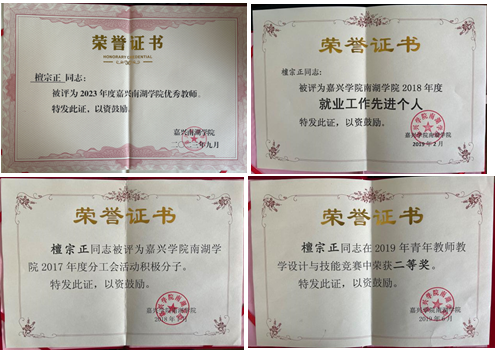 荣誉证书
HONORARY CREDENTIAL
檀宗正 同志：
被评为 2023 年度嘉兴南湖学院优秀教师。
特发此证，以资鼓励。
嘉兴南湖学院
荣誉证书
檀宗正同志：
被评为嘉兴学院南湖学院 2018 年度
就业工作先进个人
特发此证，以资鼓励。
嘉兴学院南湖学院
2019 年 2 月
荣誉证书
檀宗正同志被评为嘉兴学院南湖学
院 2017 年度分工会活动积极分子。
特发此证，以资鼓励。
嘉兴学院南湖学院
荣誉证书
檀宗正同志在 2019 年青年教师教
学设计与技能竞赛中荣获二等奖。
特发此证，以资鼓励。
嘉兴学院南湖学院
2019 年 6 月